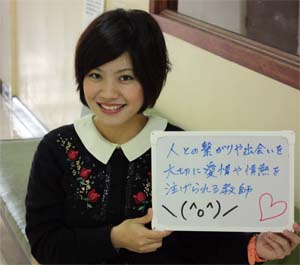 人との繋がりや出会いを
大切に愛情や情熱を
注げられる教師
＼(^o^)／